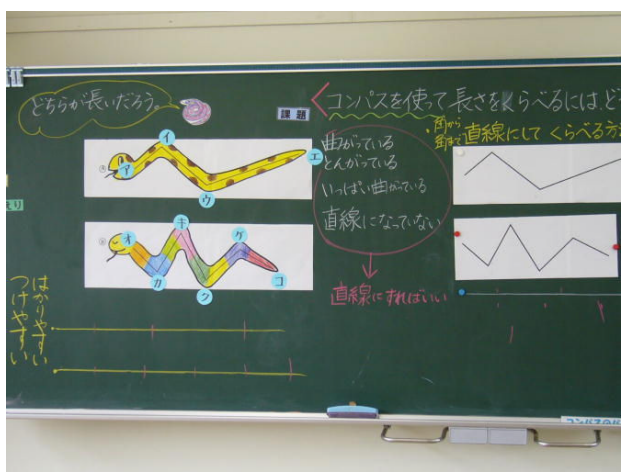 どちらが長いだろう。
課題
コンパスを使って長さをくらべるには、ど
・角から
角まで直線にしてくらべる方
ア
イ
ウ
エ
曲がっている
とんがっている
いっぱい曲がっている
直線になっていない
オ
カ
キ
ク
グ
コ
直線にすればいい
はかりやすい
つけやすい